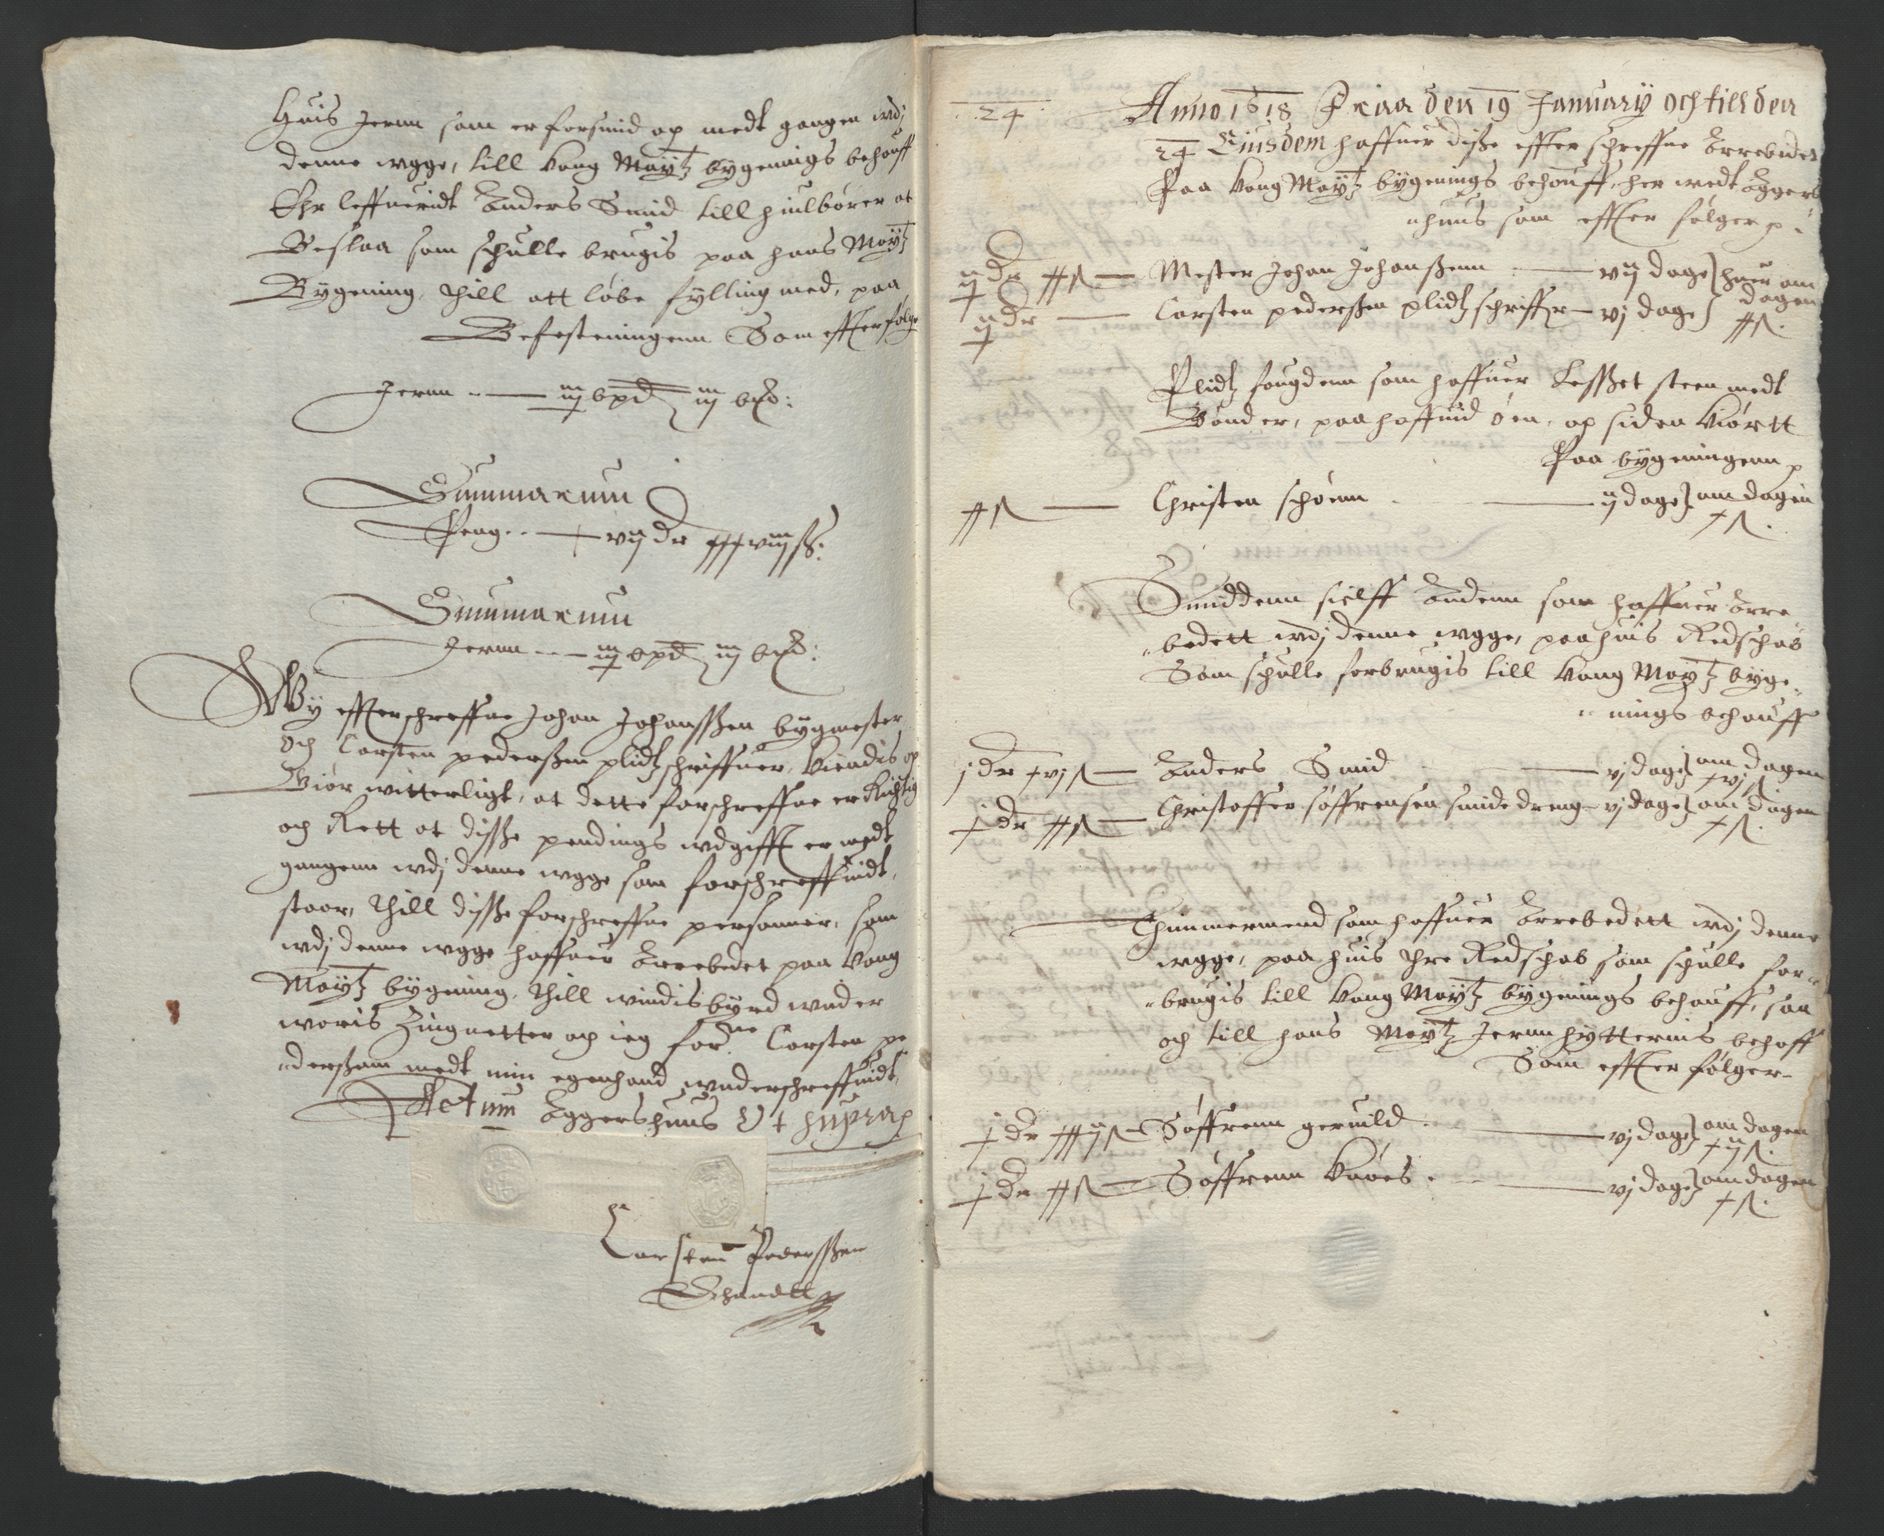 Huis Jernn som er forsmid op medt gangen wdj
denne wgge, till Kong Maytz bygenings behouff
Ehr leffueridt Anders Smid till hiulbörer at
Beslaa som schulle brugis paa hans Maytz
Bygening, thill att löbe fylling med, paa
Befesteningenn Som effter fölger
Jernn
Summarum
Peng
Summarum
Jernn
Wy effterschreffne Johan Johanssen bygmester
Och Carsten pederssen plidtz schriffuer, Kiendis og
Giör witterligt, at dette forschreffne er Richtig
och Rett at disse pendings wdgifft er medt
gangenn wdj denne wgge som forschreffuidt
staar, thill disse forschreffne personner, som
wdj denne wgge haffuer Arrebedet paa Kong
Maytz bygening, thill windisbyrd wnder
woris Zingnetter och ieg forne Carsten pe
derssøn medt min egenhand wnderschreffuidt,
Actum Aggershuus Ut supra
Carsten Pederssen
Egen handt
24
Anno 1618 Fraa den 19 January och till den
24 Eiusdem haffuer disse effter schreffne Arrebidet
Paa Kong Maytz bygenings behouff, her wedt Aggers
huus som effter fölger
Mester Johan Johanssenn vij dage } huer om
dagen
Carsten pederssen plidtz schriffr vj dage
Plidtz fougdenn som haffuer Lesset steen medt
Bönder, paa hoffuid öen, op siden Kiörtt
Paa bygeningenn
Christen schöenn ij dage } om dagen
Smiddenn sielff Andenn som haffuer Arre
bedett wdj denne wgge, paa huis Redschab
Som schulle forbrugis till Kong Maytz byge
nings behouff
j dr Anders Smid vj dage } om dagen
Christoffer söffrensen smidedreng vj dage } om dagen
Thimmermend som haffuer Arrebedett wdj denne
wgge, paa huis thre Redschab som schulle for
brugis till Kong Maytz bygenings behouff, saa
och till hans Maytz Jernn hytternis behoff
Som effter fölger
Söffrenn geruild vj dage } om dagen
Söffrenn Knöes vj dage } om dagen